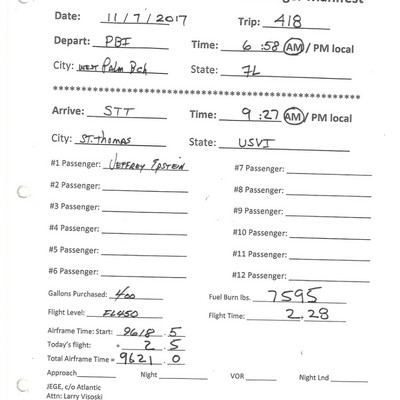 Date: 11/7/2017 Trip: 418
Depart: PBI Time: 6:58 AM / PM local
City: West Palm Bch State: FL
************************************************
Arrive: STT Time: 9:27 AM / PM local
City: St. Thomas State: USVI
#1 Passenger: Jeffrey Epstein #7 Passenger:
#2 Passenger: #8 Passenger:
#3 Passenger: #9 Passenger:
#4 Passenger: #10 Passenger:
#5 Passenger: #11 Passenger:
#6 Passenger: #12 Passenger:
Gallons Purchased: 400 Fuel Burn lbs. 7595
Flight Level: FL450 Flight Time: 2.28
Airframe Time: Start: 9618.5
Today's flight: + 2.5
Total Airframe Time = 9621.0
Approach Night VOR Night Lnd
JEGE, c/o Atlantic
Attn: Larry Visoski